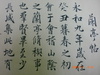 蘭亭帖
永和九年歲在
癸丑暮春之初
會于會稽山陰
之蘭亭脩禊事
也羣賢畢至少
長咸集此地有